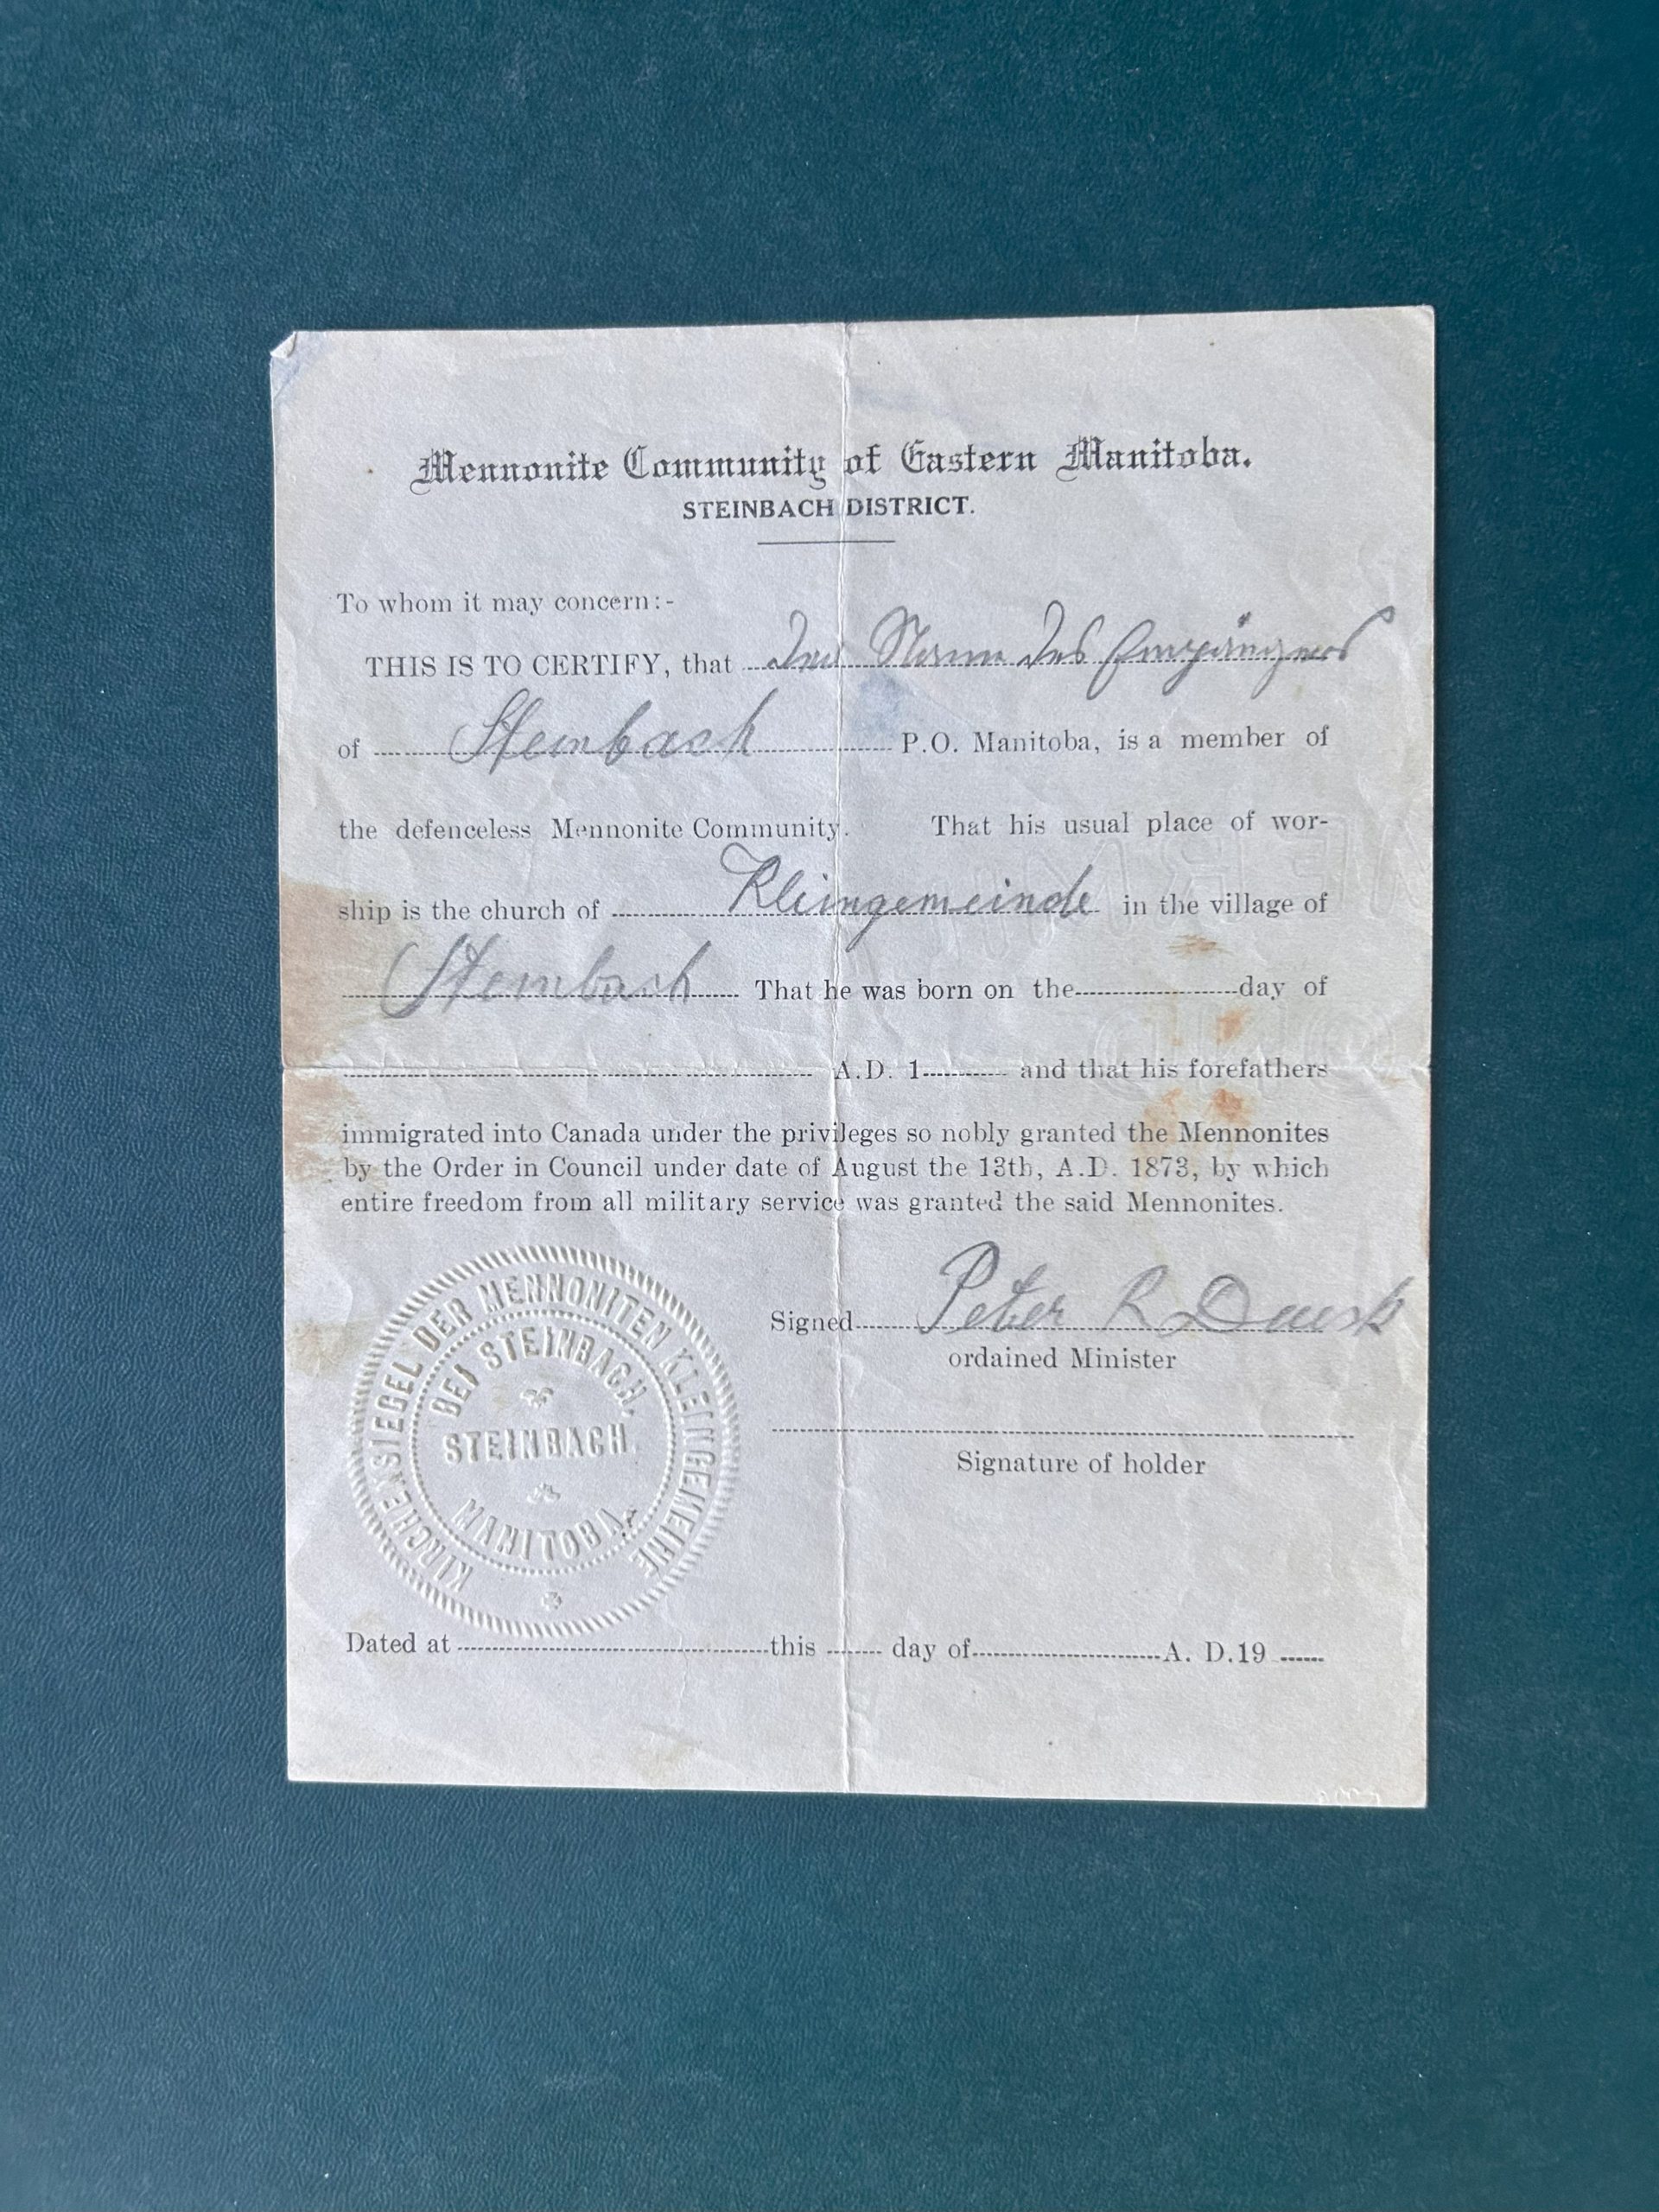 Mennonite Community of Eastern Manitoba.
STEINBACH DISTRICT.
To whom it may concern:-
THIS IS TO CERTIFY, that Der Name des Empfängers
of Steinbach P.O. Manitoba, is a member of
the defenceless Mennonite Community. That his usual place of wor-
ship is the church of Kleingemeinde in the village of
Steinbach That he was born on the day of
A.D. 1 and that his forefathers
immigrated into Canada under the privileges so nobly granted the Mennonites
by the Order in Council under date of August the 13th, A.D. 1873, by which
entire freedom from all military service was granted the said Mennonites.
Signed Peter R Dueck
ordained Minister
Signature of holder
KIRCHENSIEGEL DER MENNONITEN KLEINGEMEINE
BEI STEINBACH,
STEINBACH.
MANITOBA.
Dated at this day of A. D.19